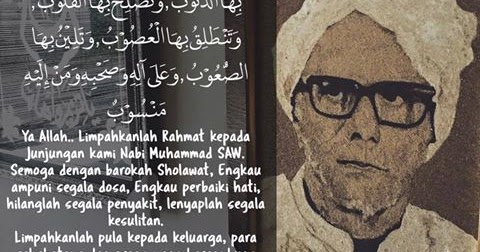 بِهَا الذُّنُوْبُ, وَتُصْلَحُ بِهَا الْقُلُوْبُ,
وَتَنْطَلِقُ بِهَا الْعُصُوْبُ, وَتَلِيْنُ بِهَا
الصُّعُوْبُ, وَعَلَى آلِهِ وَصَحْبِهِ وَمَنْ إِلَيْهِ
مَنْسُوْبٌ
Ya Allah.. Limpahkanlah Rahmat kepada
Junjungan kami Nabi Muhammad SAW.
Semoga dengan barokah Sholawat, Engkau
ampuni segala dosa, Engkau perbaiki hati,
hilanglah segala penyakit, lenyaplah segala
kesulitan.
Limpahkanlah pula kepada keluarga, para